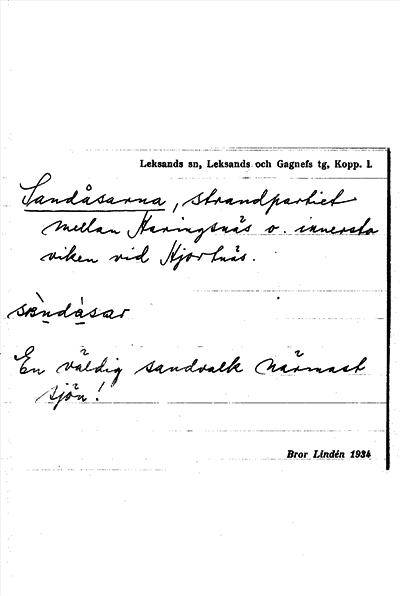 Leksands sn, Leksands och Gagnefs tg, Kopp. l.
Sandåsarna, strandpartiet
mellan Haringsnäs o. innersta
viken vid Hjortnäs.
En väldig sandvalk närmast
sjön!
Bror Lindén 1934